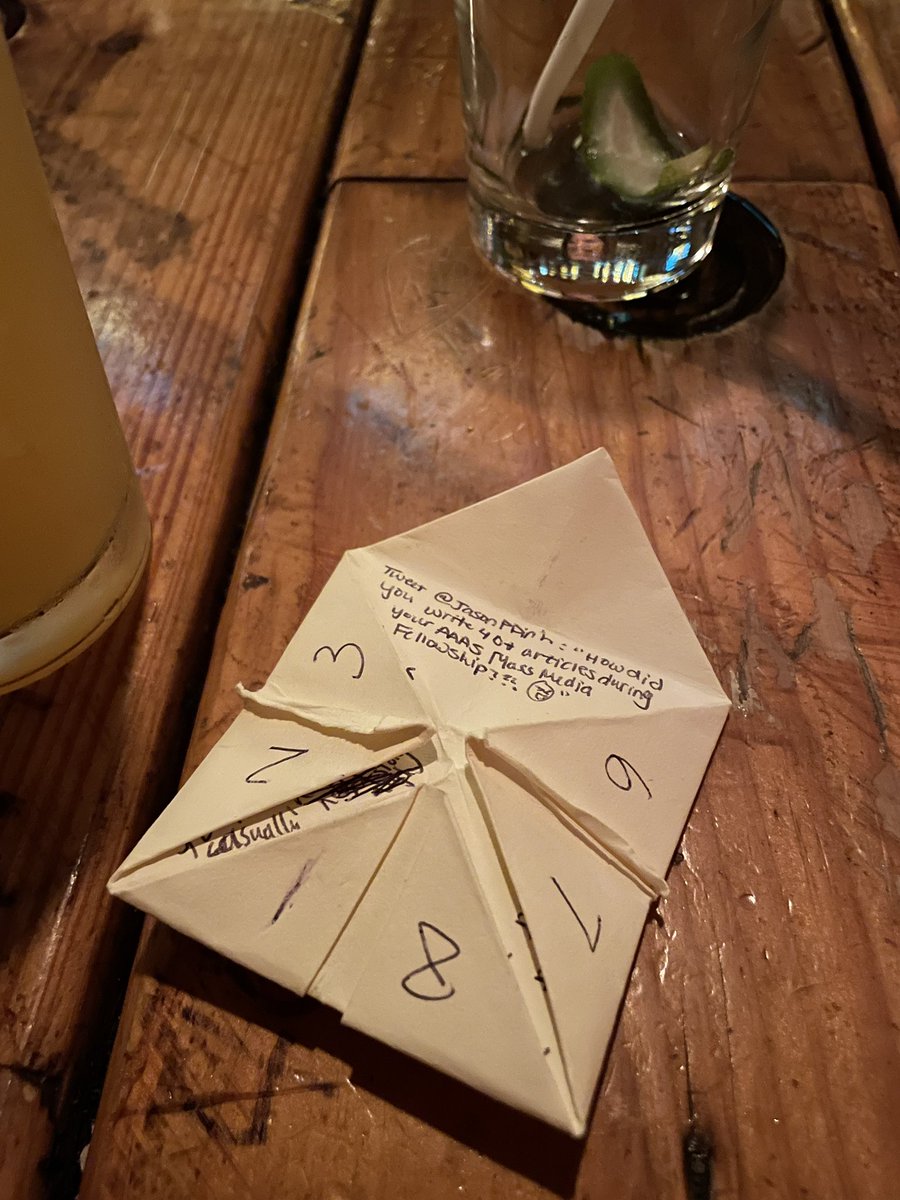 Tweet @JasonPDinh: "How did
you write 40+ articles during
your AAAS Mass Media
Fellowship?!!
"
3
2
"casually
1
8
7
6